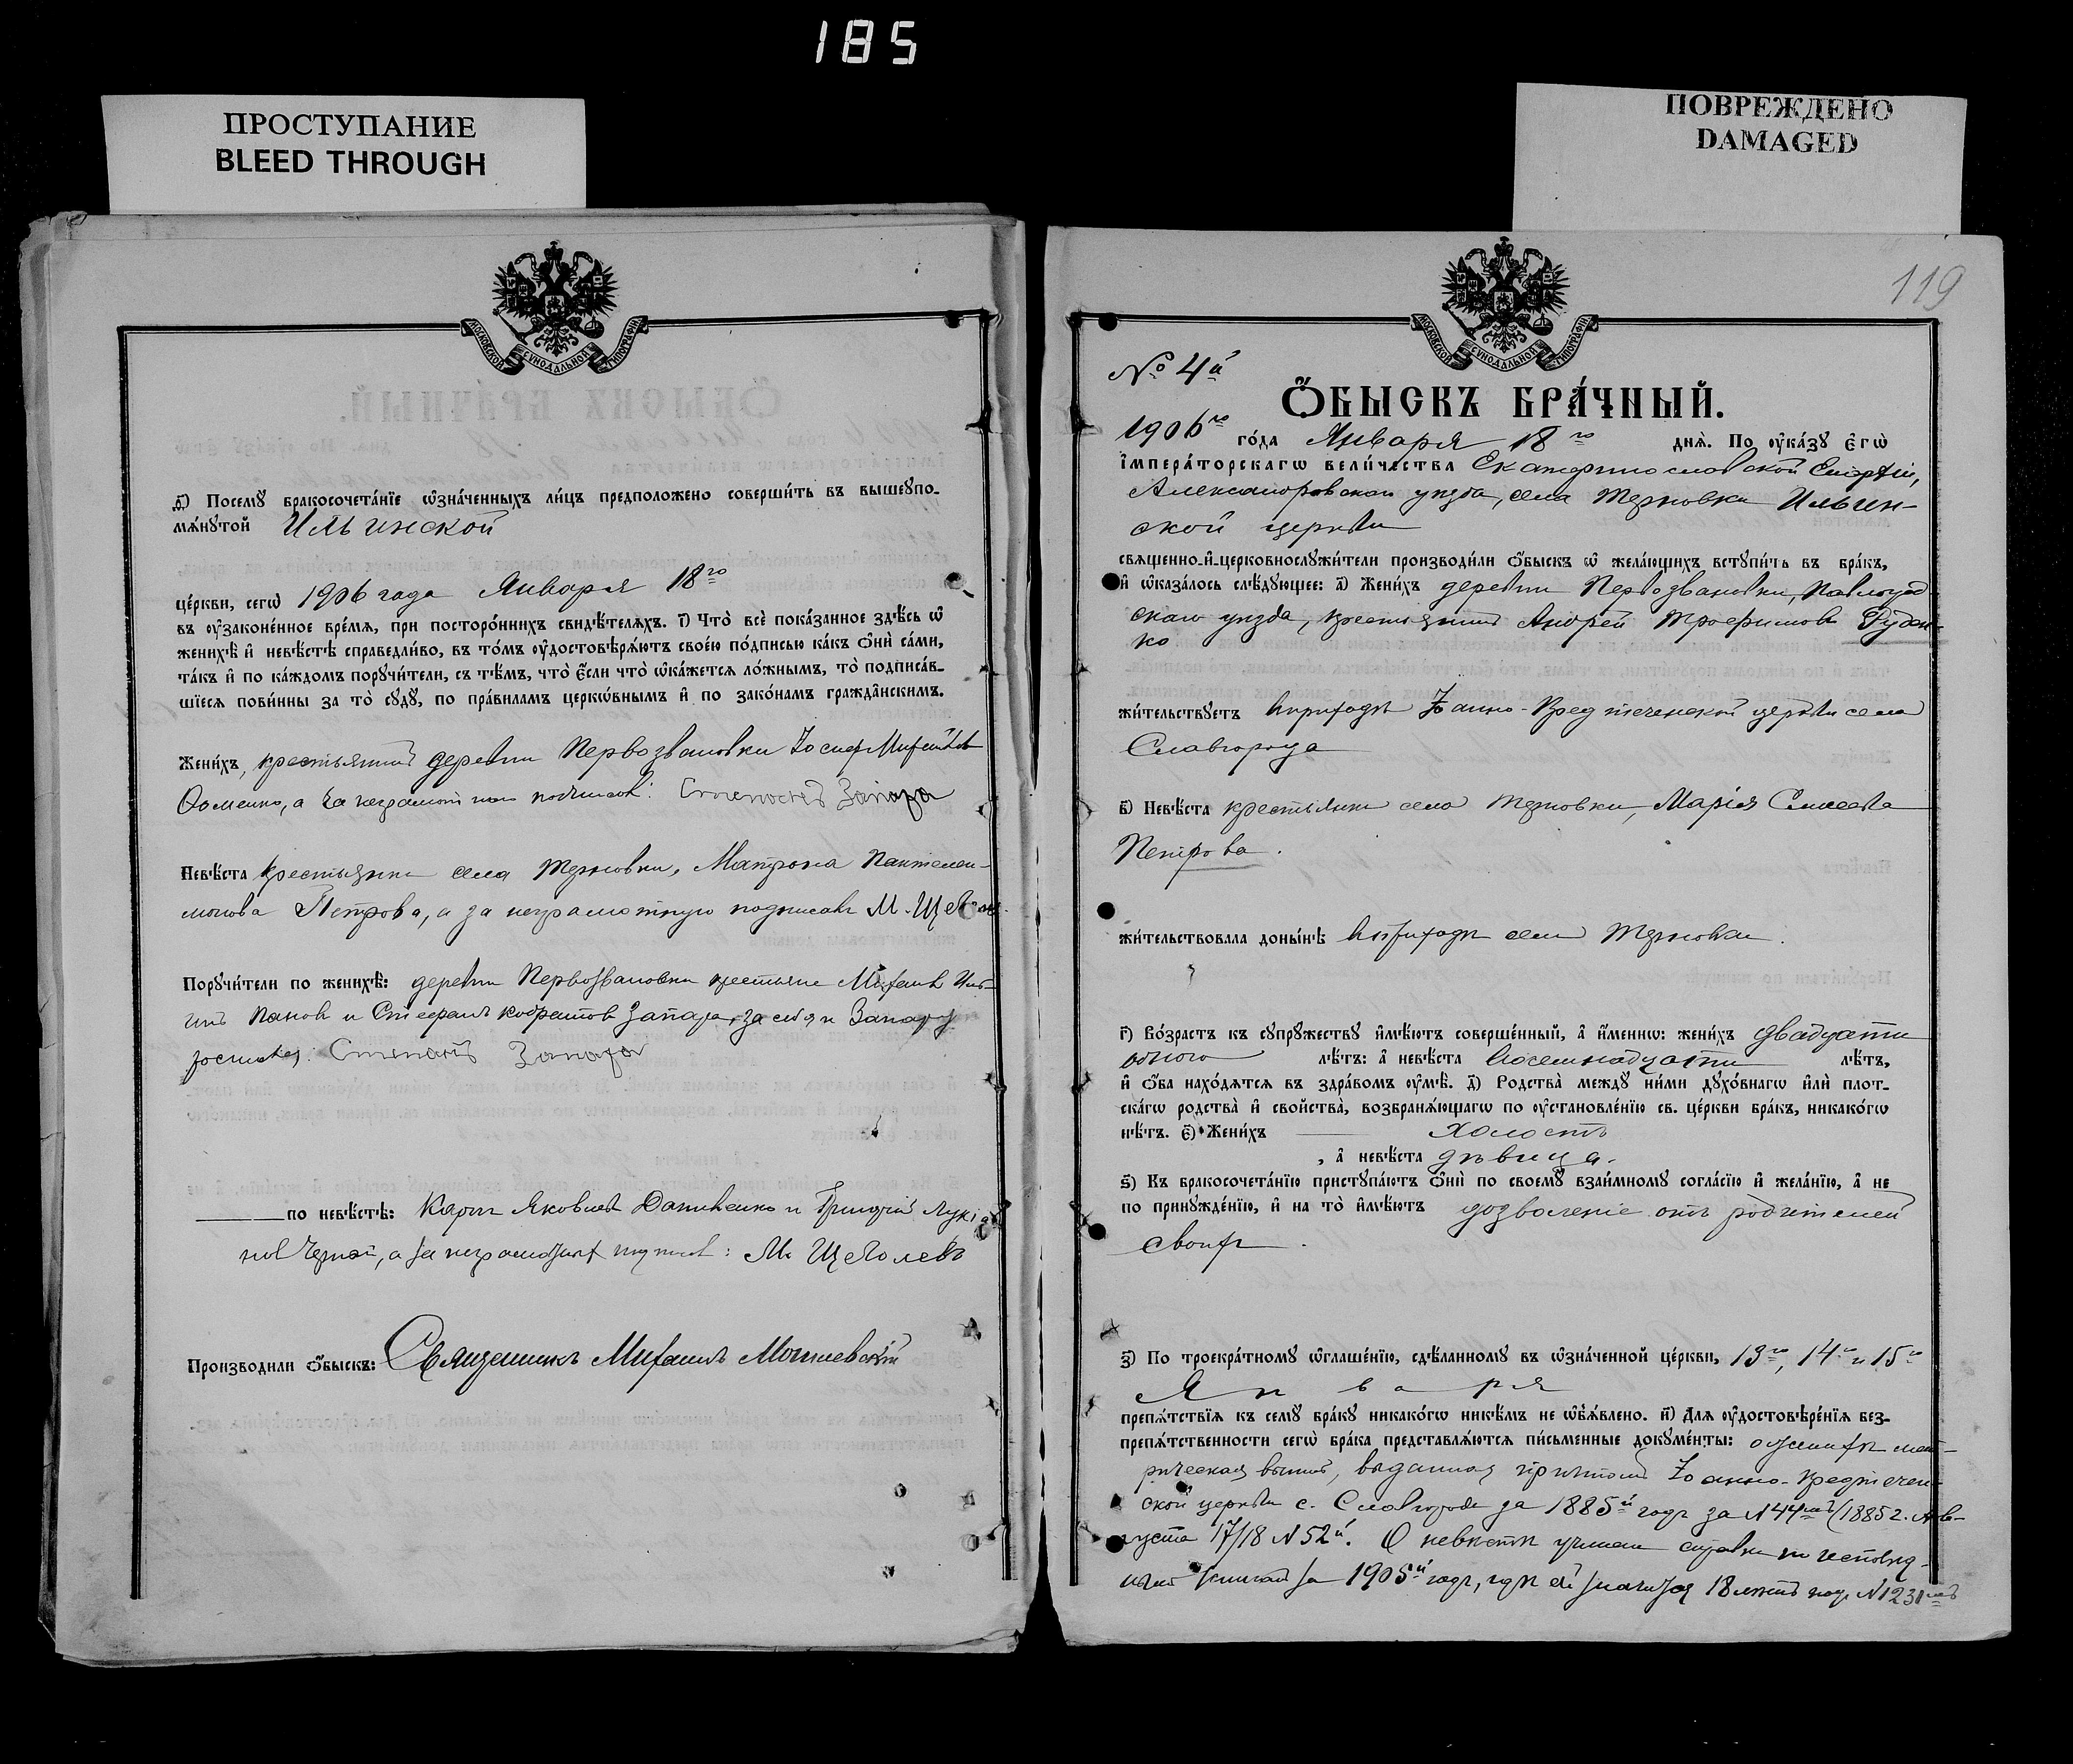 185
ПРОСТУПАНИЕ
BLEED THROUGH
ПОВРЕЖДЕНО
DAMAGED
МОСКОВСКОЙ СѴНОДАЛЬНОЙ ТИПОГРАФІИ
д҃і) Посемꙋ бракосочета́нїе ѡ҆зна́ченныхъ ли́цъ предположено соверши́ть въ вышеꙋпо-
мѧ́нꙋтой Ильинской
це́ркви, сегѡ̀ 1906 года Января 18го
въ ᲂу҆законе́нное вре́мѧ, при посторо́ннихъ свидѣ́телѧхъ. і҃) Что̀ всѐ пока́занное здѣ́сь ѡ҆
женихѣ̀ и҆ невѣ́стѣ справедли́во, въ то́мъ ᲂу҆достовѣрѧ́ютъ свое́ю по́дписью ка́къ ѻ҆нѝ са́ми,
та́къ и҆ по ка́ждомъ порꙋчи́тели, съ тѣ́мъ, что̀ є҆́сли что̀ ѡ҆ка́жетсѧ ло́жнымъ, то̀ подписа́в-
шїесѧ пови́нны за то̀ сꙋдꙋ̀, по пра́виламъ церкѡ́внымъ и҆ по зако́намъ гражда̑нскимъ.
Жени́хъ, крестьянинъ деревни Первозвановки Іосиф Михайлов
а за неграмотнаго Степанъ Запара
Невѣ́ста крестьянка села Терновки, Матрона Пантелеи-
монова Петрова, а за неграмотную подписалъ М. Щеголевъ
Порꙋчи́тели по женихѣ̀: деревни Первозвановки крестьяне Михаилъ
Панов и Стефанъ Запара, за себя и
Степанъ Запара
по невѣ́стѣ: Карпъ Яковлевъ и Григорій Лукіа
нов а за неграмотных М. Щеголевъ
Производили ѻ҆́быскъ: Священникъ Михаилъ
119
МОСКОВСКОЙ СѴНОДАЛЬНОЙ ТИПОГРАФІИ
№ 4й
Ѻ҆́БЫСКЪ БРА́ЧНЫЙ.
1906го го́да Января 18го днѧ̀. По ᲂу҆ка́зꙋ є҆гѡ̀
і҆мпера́торскагѡ вели́чества Екатеринославской Епархіи,
Александровскаго уѣзда, села Терновки Ильин-
ской церкви
свѧщенно-и҆-церковнослꙋжи́тели производи́ли ѻ҆́быскъ ѡ҆ жела́ющихъ встꙋпи́ть въ бра́къ,
и҆ ѡ҆каза́лось слѣ́дꙋющее: а҃) Жени́хъ деревни Первозвановки, Павлоград
скаго уѣзда, крестьянинъ Андрей Трофимовъ Руден-
ко
жи́тельствꙋетъ въ приходѣ Іоанно-Предтеченской церкви села
Славгорода
в҃) Невѣ́ста крестьянка села Терновки, Марія Елисеева
Петрова.
жи́тельствовала доны́нѣ въ приходѣ села Терновки.
г҃) Во́зрастъ къ сꙋпрꙋ́жествꙋ и҆мѣ́ютъ соверше́нный, а҆ и҆́меннѡ: жени́хъ двадцати
одного лѣ́тъ: а҆ невѣ́ста восемнадцати лѣ́тъ,
и҆ ѻ҆́ба нахо́дѧтсѧ въ здра́вомъ ᲂу҆мѣ̀. д҃) Родства̀ междꙋ̀ ни́ми дꙋхо́внагѡ и҆лѝ плот-
ска́гѡ родства̀ и҆ свойства̀, возбранѧ́ющагѡ по ᲂу҆становле́нїю св. це́ркви бра́къ, никако́гѡ
нѣ́тъ. є҃) Жени́хъ холостъ
, а҆ невѣ́ста дѣвица.
ѕ҃) Къ бракосочета́нїю пристꙋпа́ютъ ѻ҆нѝ по своемꙋ̀ взаи́мномꙋ согла́сїю и҆ жела́нїю, а҆ не
по принꙋжде́нїю, и҆ на то̀ и҆мѣ́ютъ дозволеніе отъ родителей
своихъ.
з҃) По троекра́тномꙋ ѡ҆глаше́нїю, сдѣ́ланномꙋ въ ѡ҆зна́ченной це́ркви, 13го, 14го и 15го
Января
препѧ́тствїѧ къ семꙋ̀ бра́кꙋ никако́гѡ никѣ́мъ не ѡ҆б̾ѧ́влено. и҃) Длѧ ᲂу҆достовѣре́нїѧ без-
препѧ́тственности сегѡ̀ бра́ка представлѧ́ютсѧ пи́сьменные докꙋме́нты: о женихѣ мет-
рическая выпись, выданная причтомъ Іоанно-Предтечен-
ской церкви с. Славгорода за 1885й годъ за №44мъ (1885 г. Ав-
густа 17/18 №52й. О невѣстѣ учинена справка по исповѣд-
ной книгѣ за 1905й годъ, гдѣ ей значится 18 лѣтъ под №1231мъ